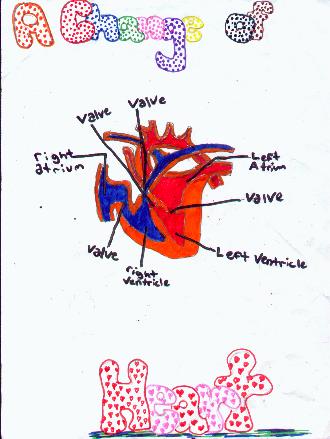 A Change of
Valve
Valve
right
atrium
Left
Atrium
Valve
Valve
Left Ventricle
right
ventricle
Heart